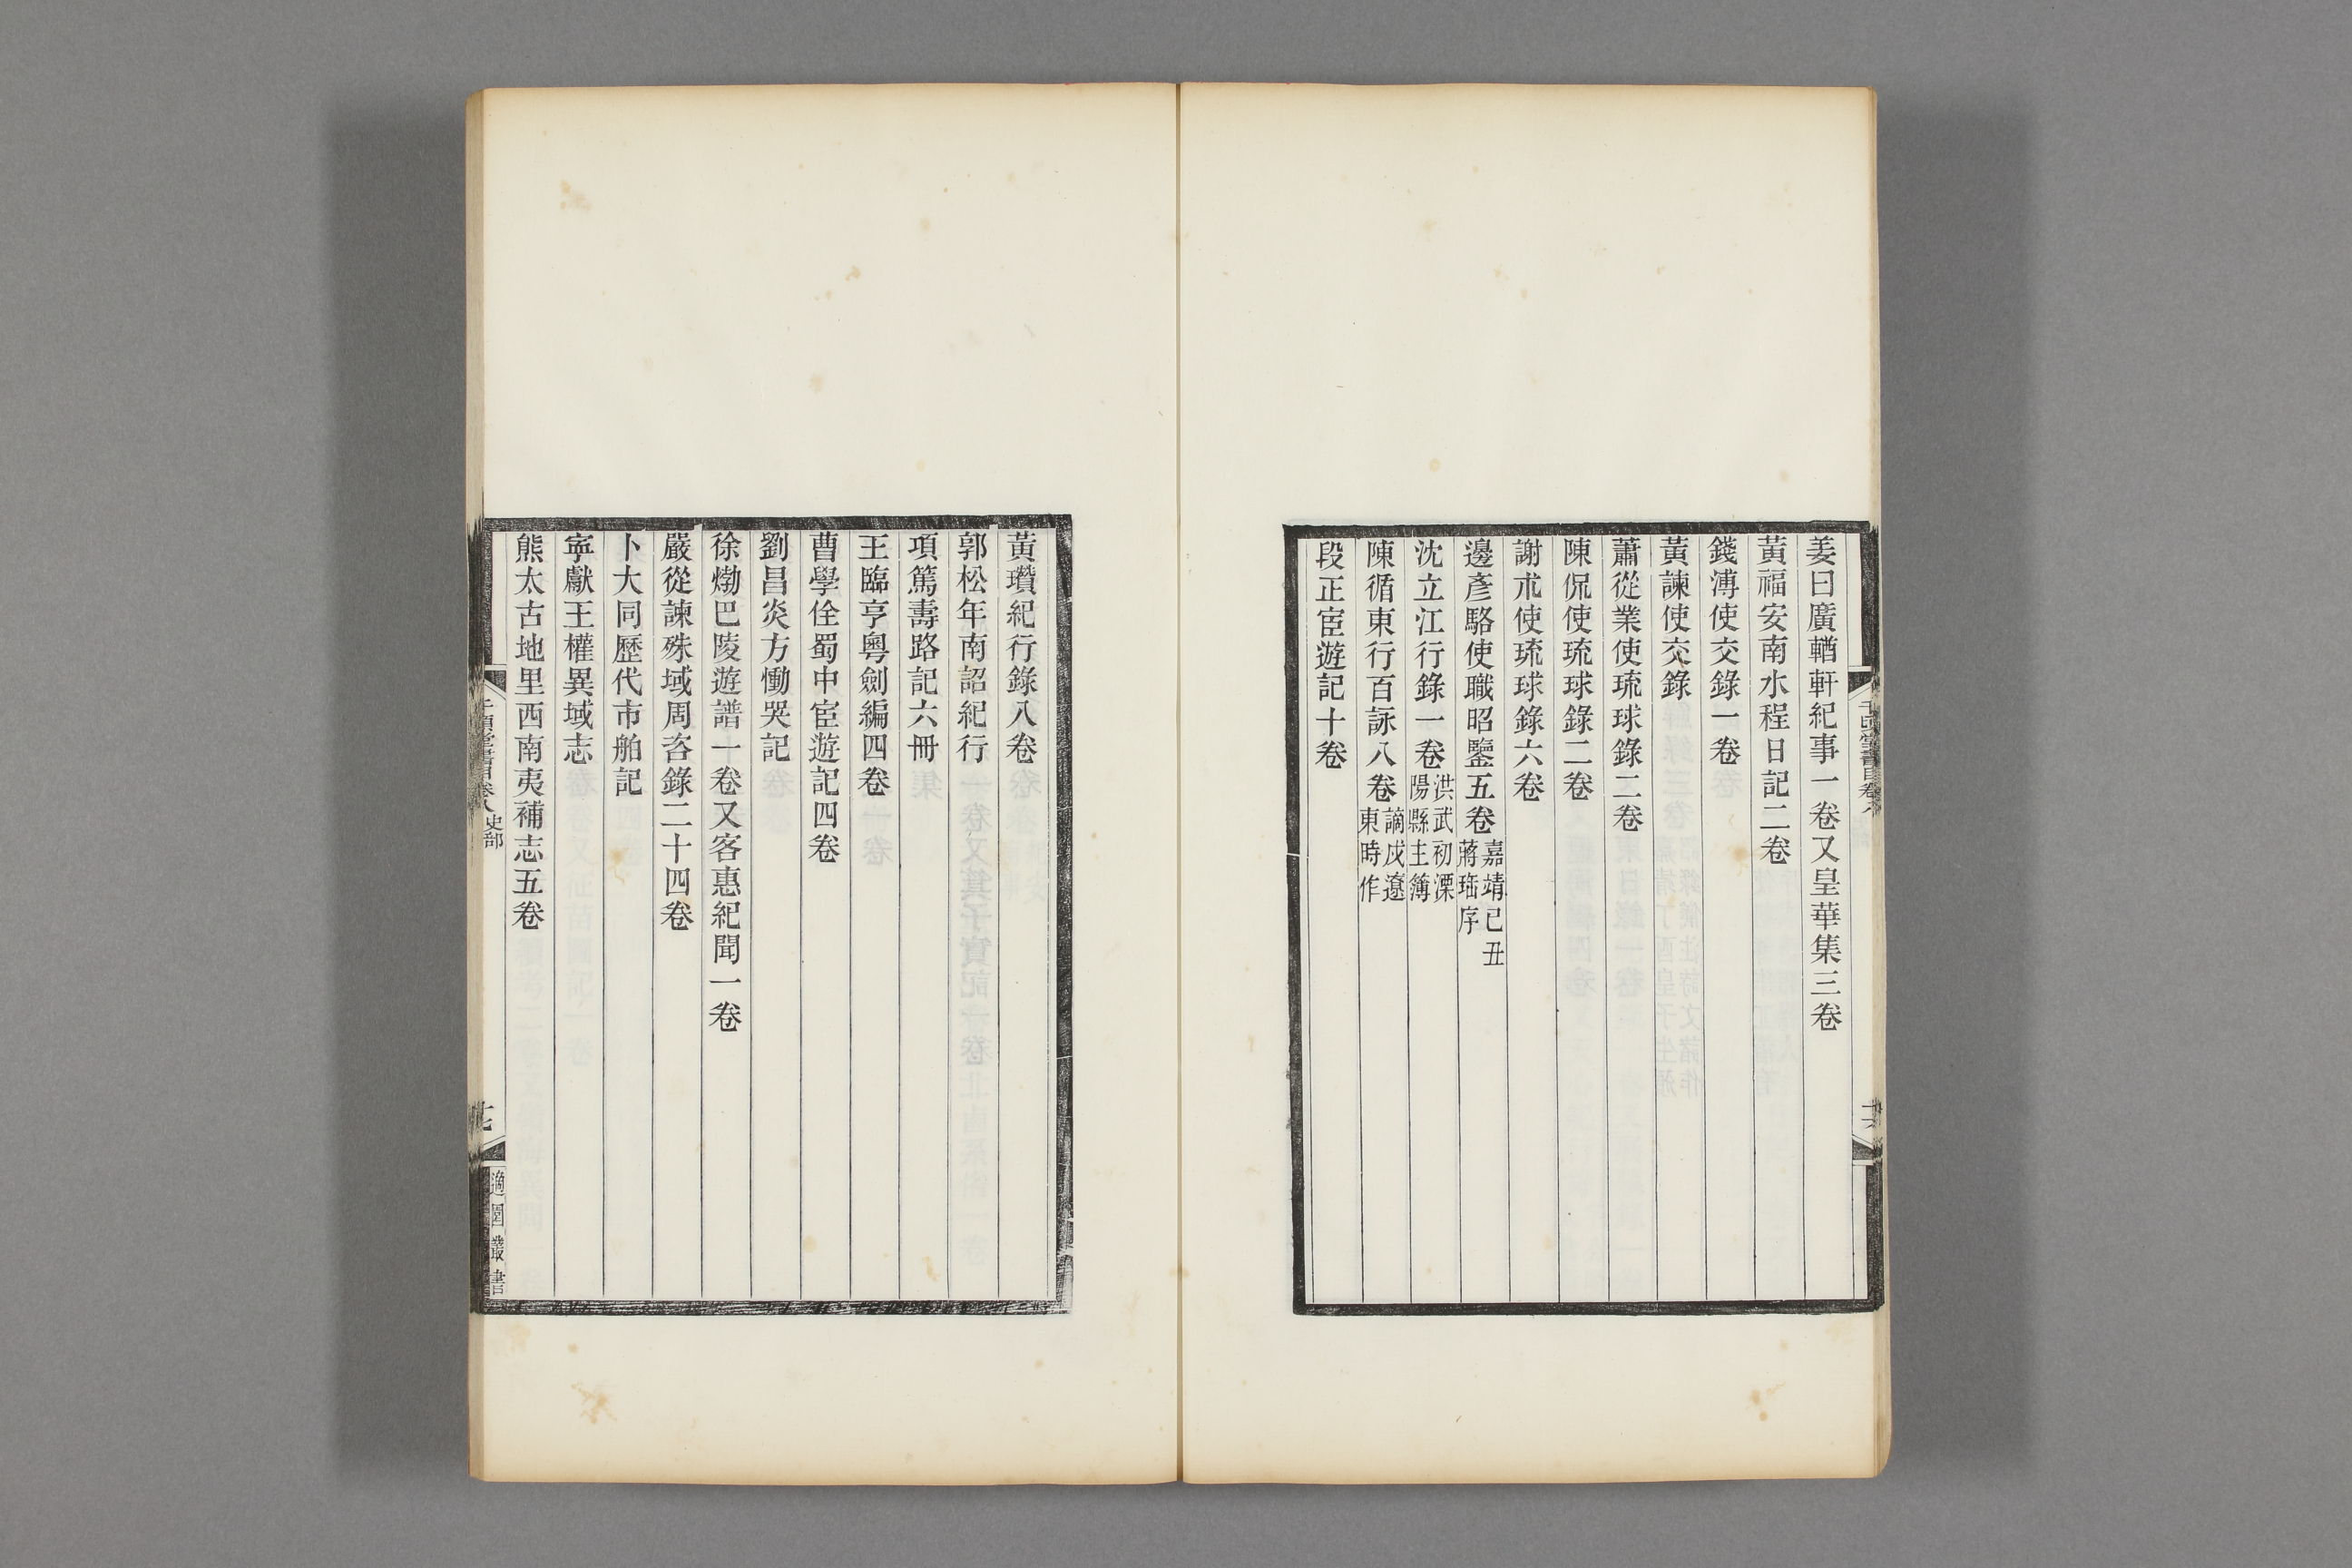 姜曰廣輶軒紀事一卷又皇華集三卷
黃福安南水程日記二卷
錢溥使交錄一卷
黃諫使交錄
蕭從業使琉球錄二卷
陳侃使琉球錄二卷
謝朮使琉球錄六卷
邊彥駱使職昭鑒五卷嘉靖己丑
蔣珤序
沈立江行錄一卷洪武初溧
陽縣主簿
陳循東行百詠八卷謫戍遼
東時作
段正宦遊記十卷
千頃堂書目卷八
十六
黃瓚紀行錄八卷
郭松年南詔紀行
項篤壽路記六冊
王臨亨粵劍編四卷
曹學佺蜀中宦遊記四卷
劉昌炎方慟哭記
徐𤊹巴陵遊譜一卷又客惠紀聞一卷
嚴從諫殊域周咨錄二十四卷
卜大同歷代市舶記
寧獻王權異域志
熊太古地里西南夷補志五卷
千頃堂書目卷八史部
十七
適園叢書